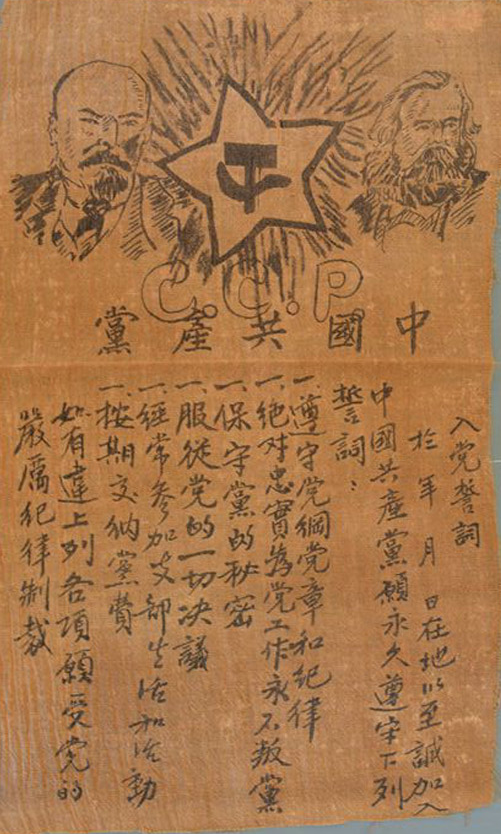 C.C.P.
中國共產黨
入党誓詞
於 年 月 日在地以至誠加入
中國共產黨願永久遵守下列
誓詞：
一.遵守党綱党章和紀律
一.绝对忠實為党工作永不叛黨
一.保守黨的秘密
一.服從党的一切决議
一.經常参加支部生活和活動
一.按期交纳黨費
如有違上列各項願受党的
嚴厲紀律制裁